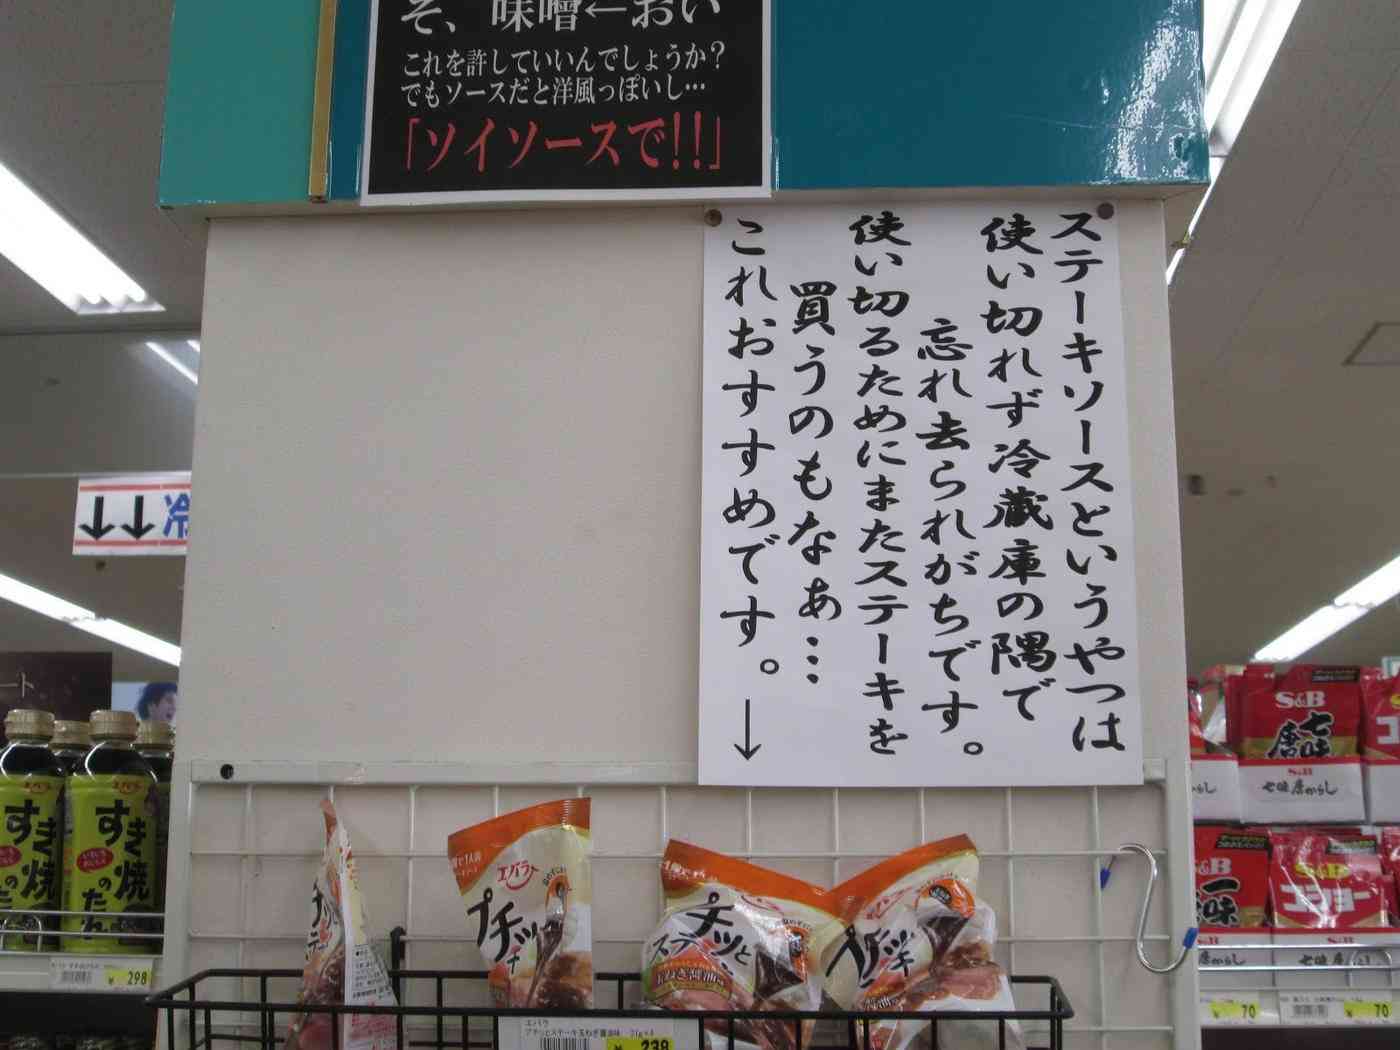 そ、味噌←おい
これを許していいんでしょうか？
でもソースだと洋風っぽいし…
「ソイソースで!!」
ステーキソースというやつは
使い切れず冷蔵庫の隅で
忘れ去られがちです。
使い切るためにまたステーキを
買うのもなぁ…
これおすすめです。↓
↓↓冷
エバラ
すき焼
のたれ
¥298
エバラ
プチッ
エバラ
プチッと
ステーキ
エバラ
プチッ
エバラ
プチッとステーキ玉ねぎ醤油味
¥238
S&B
七味
唐
S&B
七味唐からし
S&B
一味
コショー
¥70
¥70